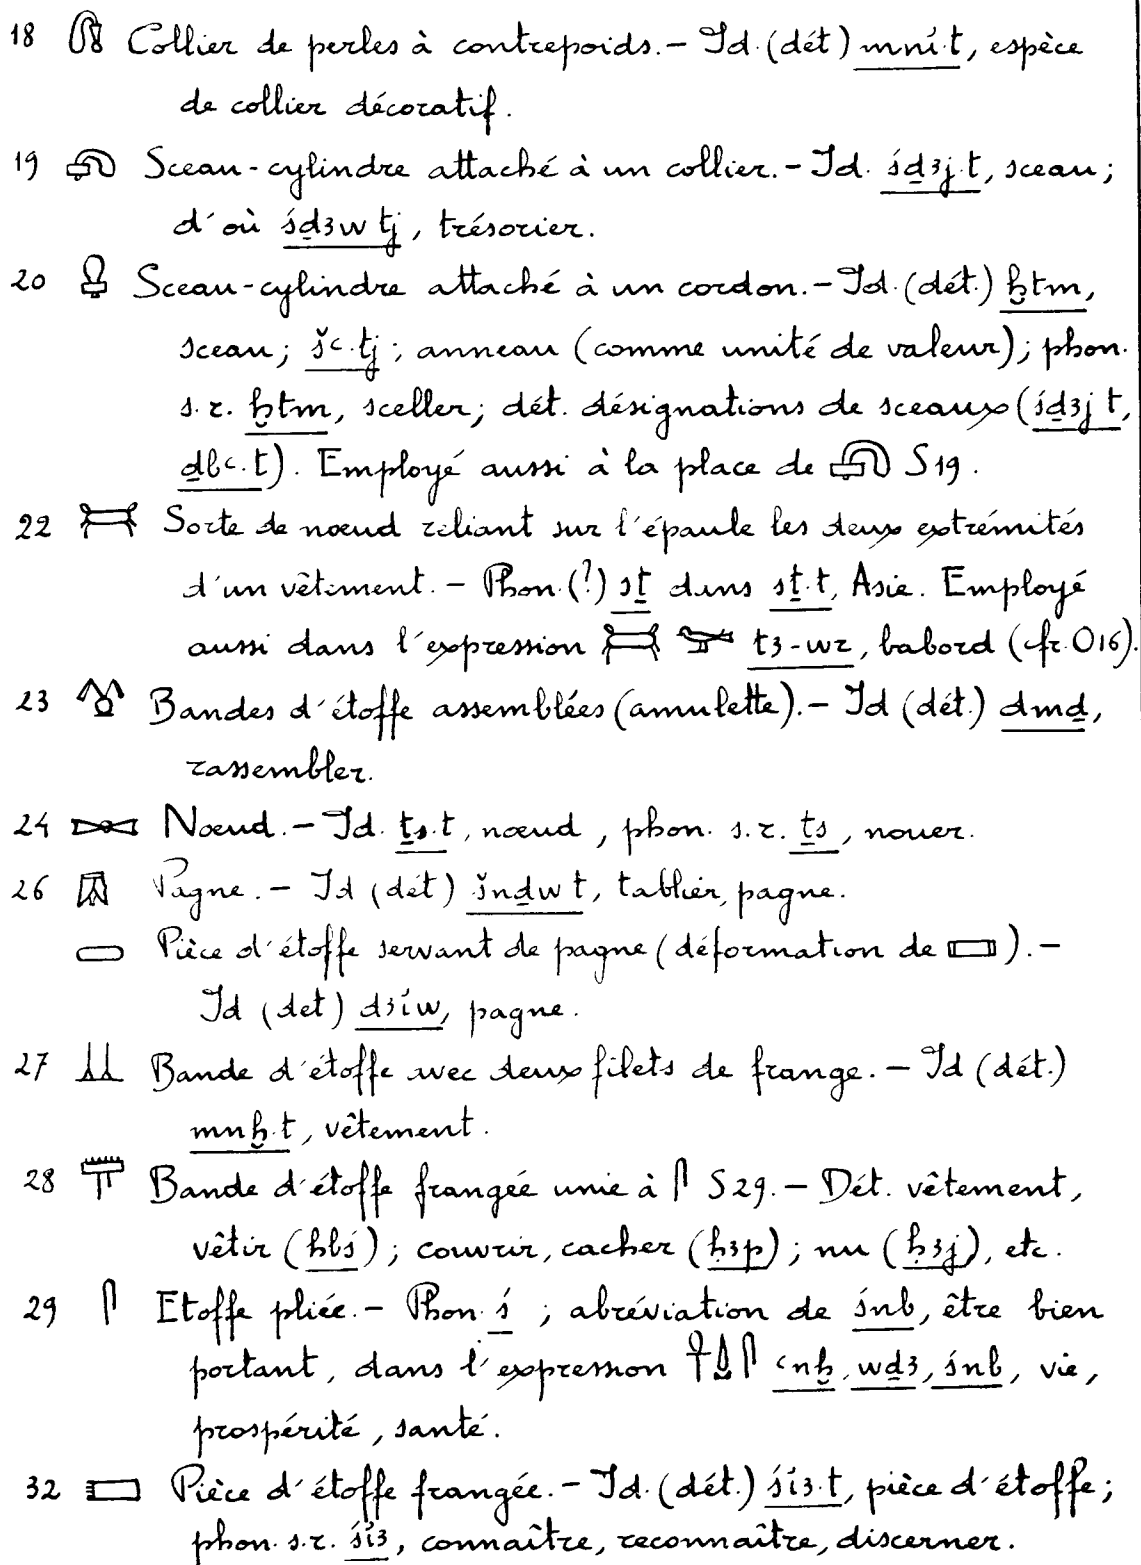 18 𓋧 Collier de perles à contrepoids. – Id. (dét) mnỉ.t, espèce
de collier décoratif.
19 𓋨 Sceau-cylindre attaché à un collier. – Id. śḏ3j.t, sceau;
d'où śḏ3w tj, trésorier.
20 𓋩 Sceau-cylindre attaché à un cordon. – Id. (dét.) ḫtm,
sceau; šꜥ.tj; anneau (comme unité de valeur); phon.
s.r. ḫtm, sceller; dét. désignations de sceaux (śḏ3j t,
ḏbꜥ.t). Employé aussi à la place de 𓋨 S19.
22 𓋫 Sorte de nœud reliant sur l'épaule les deux extrémités
d'un vêtement. – Phon. (?) sṯ dans sṯ.t, Asie. Employé
aussi dans l'expression 𓋫 𓅨 t3-wr, babord (cfr. O16).
23 𓋬 Bandes d'étoffe assemblées (amulette). – Id (dét.) dmḏ,
rassembler.
24 𓋭 Nœud. – Id. ṯs.t, nœud, phon. s.r. ṯs, nouer.
26 𓋱 Pagne. – Id (dét) šnḏw t, tablier, pagne.
𓋲 Pièce d'étoffe servant de pagne (déformation de 𓈙). –
Id (det) d3ỉw, pagne.
27 𓋳 Bande d'étoffe avec deux filets de frange. – Id (dét.)
mnḫ.t, vêtement.
28 𓋳 Bande d'étoffe frangée unie à 𓋴 S29. – Dét. vêtement,
vêtir (ḥbś); couvrir, cacher (ḥ3p); nu (ḥ3j), etc.
29 𓋴 Etoffe pliée. – Phon. ś; abréviation de śnb, être bien
portant, dans l'expression 𓋹𓍑𓋴 ꜥnḫ, wḏ3, śnb, vie,
prospérité, santé.
32 𓋷 Pièce d'étoffe frangée. – Id. (dét.) śỉ3.t, pièce d'étoffe;
phon. s.r. śỉ3, connaître, reconnaître, discerner.